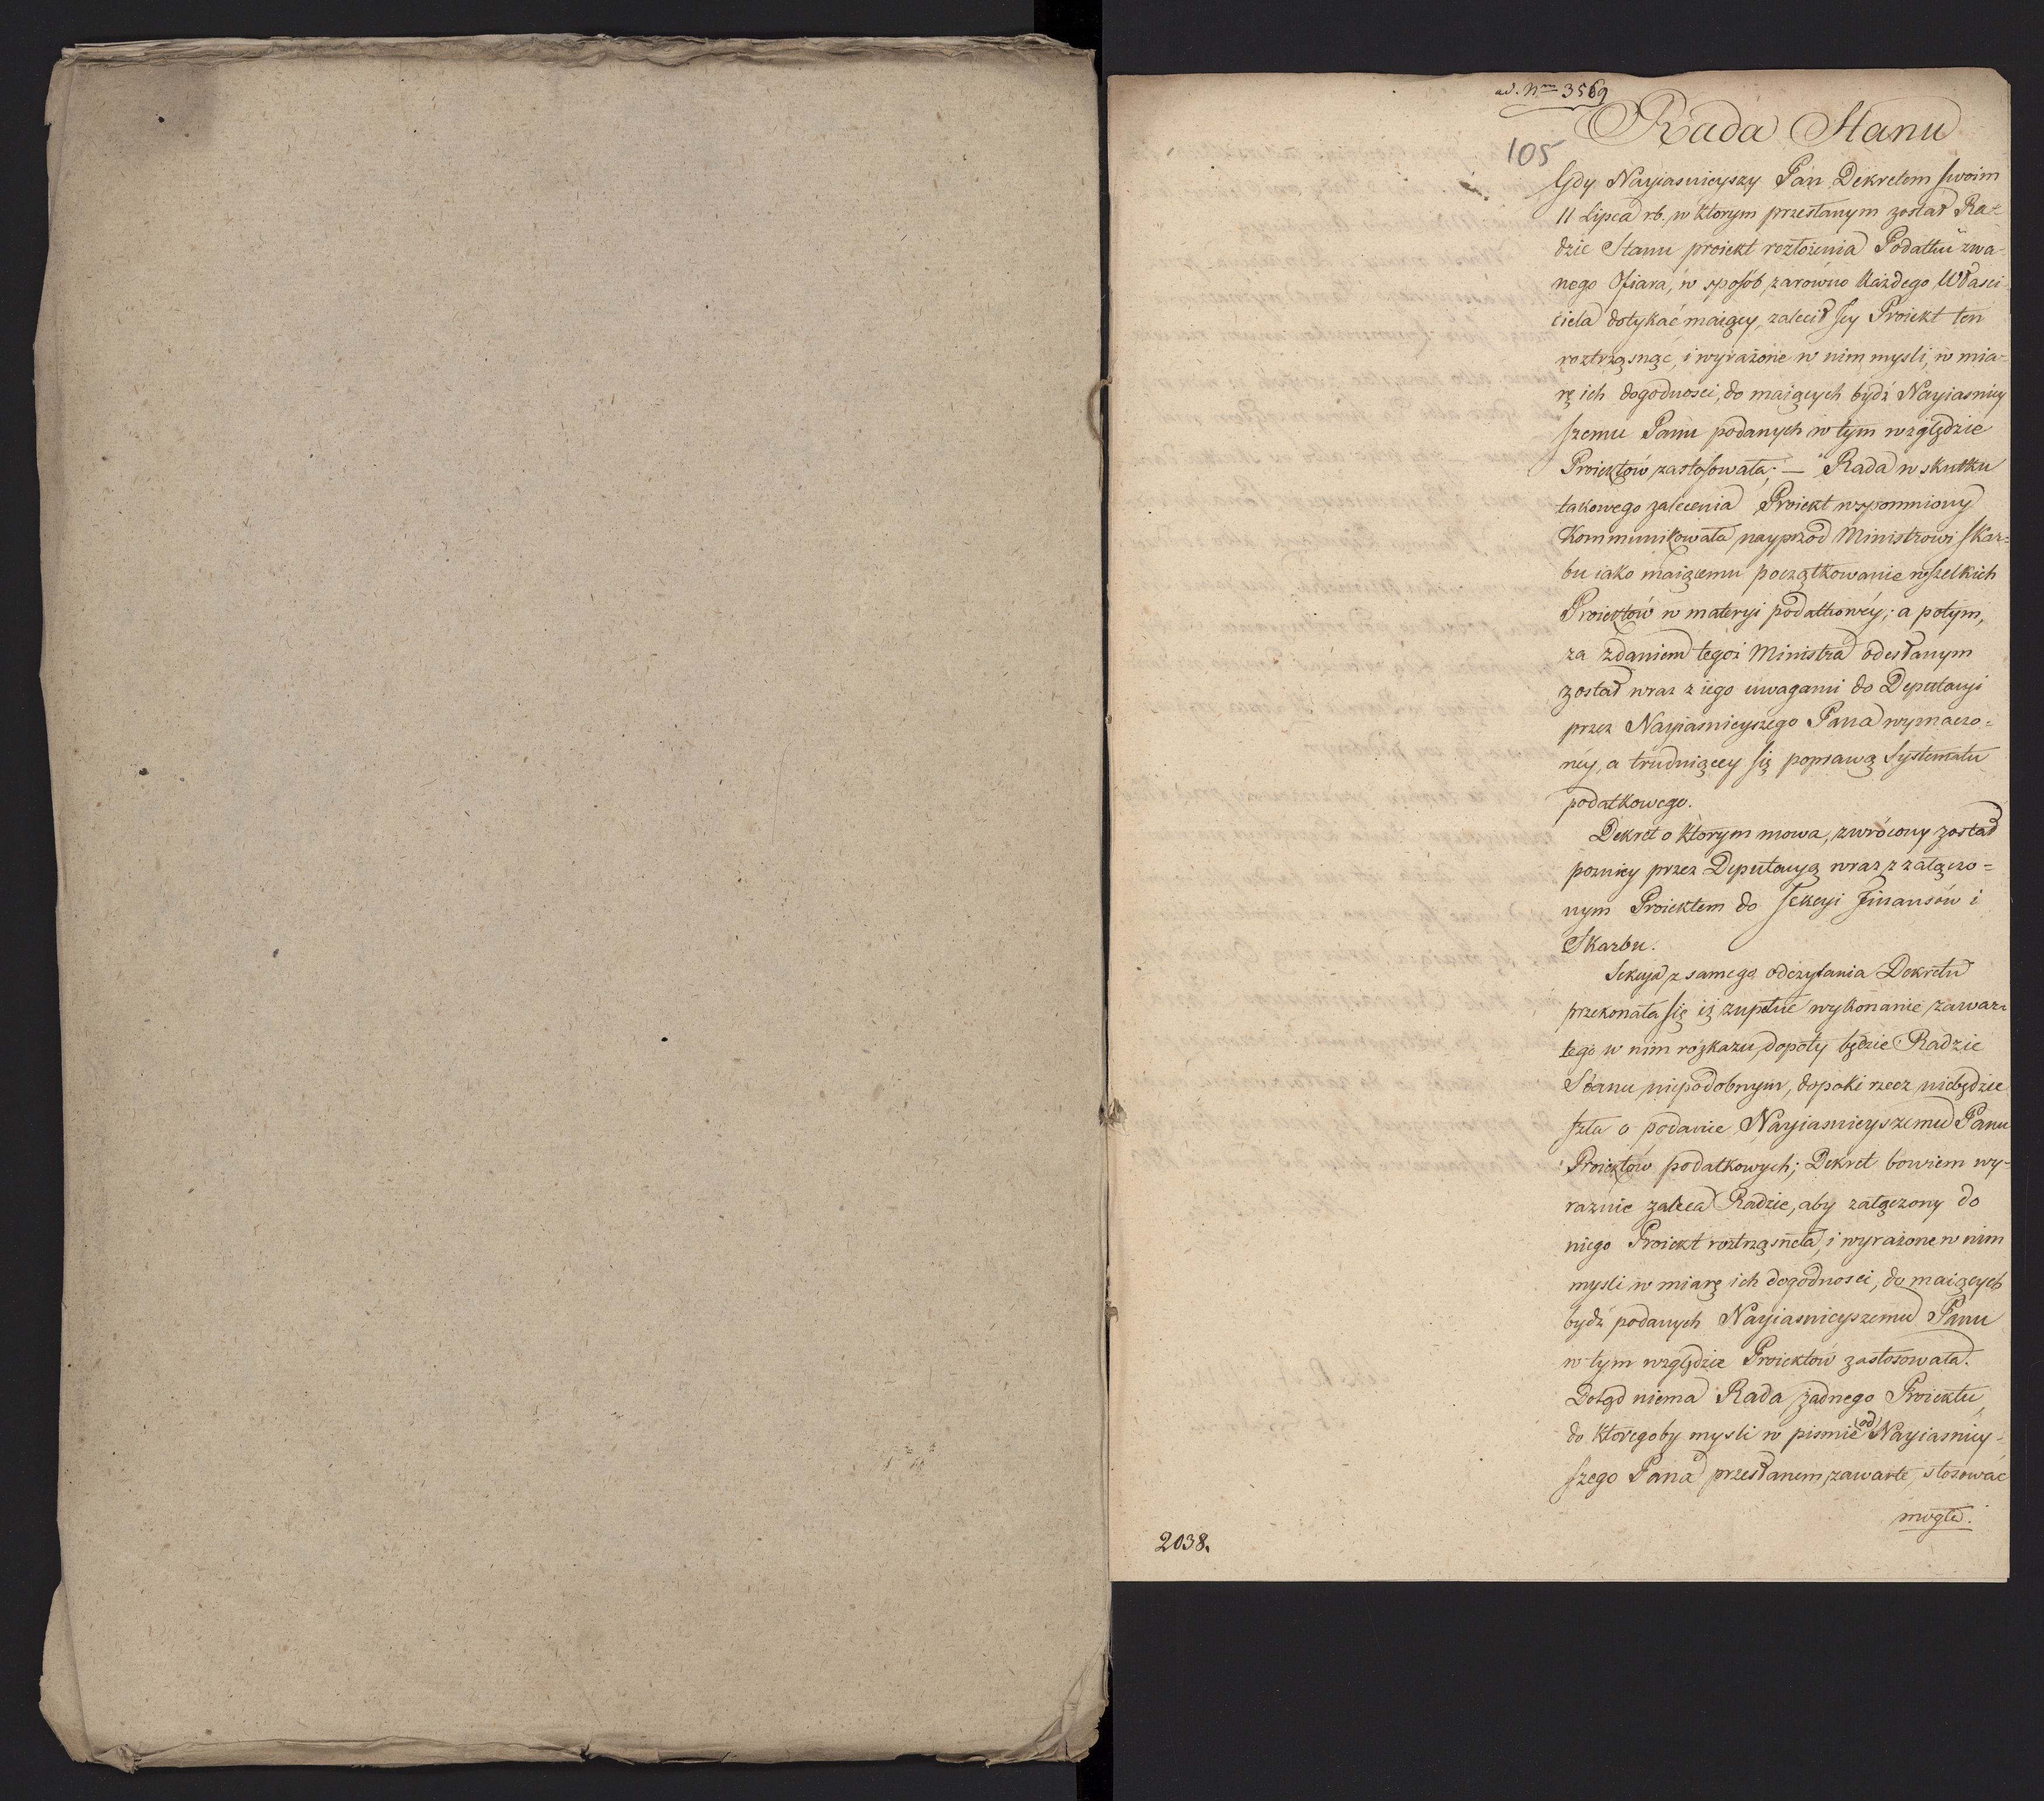 ad. Nrm 3569
105
Rada Stanu
Gdy Nayiasnieyszy Pan Dekretem swoim
11 Lipca rb. w ktorym przesłanym został Ra=
dzie Stanu proiekt rozłożenia Podatku zwa-
nego Ofiara, w sposób zarówno każdego Właści-
ciela dotykać maiący, zalecił Jey Proiekt ten
roztrząsnąć, i wyrażone w nim mysli, w mia-
rę ich dogodnosci, do maiących bydź Nayiasniey
szemu Panu podanych w tym względzie
Proiektów zastosowała; — Rada w skutku
takowego zalecenia Proiekt wspomniony
Kommunikowała nayprzod Ministrowi Skar=
bu iako maiącemu początkowanie wszelkich
Proiektów w materyi podatkowéy; a potym,
za zdaniem tegoż Ministra odesłanym
został wraz z iego uwagami do Deputacyi
przez Nayiasnieyszego Pana wyznaczo=
néy, a trudniącey się poprawą Systematu
podatkowego.
Dekret o którym mowa, zwrócony został
pozniey przez Deputacyą wraz z załączo=
nym Proiektem do Sekcyi Finansów i
Skarbu.
Sekcya z samego odczytania Dekretu
przekonała się iż zupełne wykonanie zawar=
tego w nim rozkazu, dopoty będzie Radzie
Stanu niepodobnym, dopoki rzecz niebędzie
szła o podanie Nayiasnieyszemu Panu
Proiektów podatkowych; Dekret bowiem wy=
raznie zaleca Radzie, aby załączony do
niego Proiekt roztrząsneła, i wyrażone w nim
mysli w miarę ich dogodnosci, do maiących
bydź podanych Nayiasnieyszemu Panu
w tym względzie Proiektow zastosowała.
Dotąd niema Rada żadnego Proiektu,
do któregoby mysli w pismie od Nayiasniey-
szego Pana przesłanem zawarte, stosować
mogła.
2038.